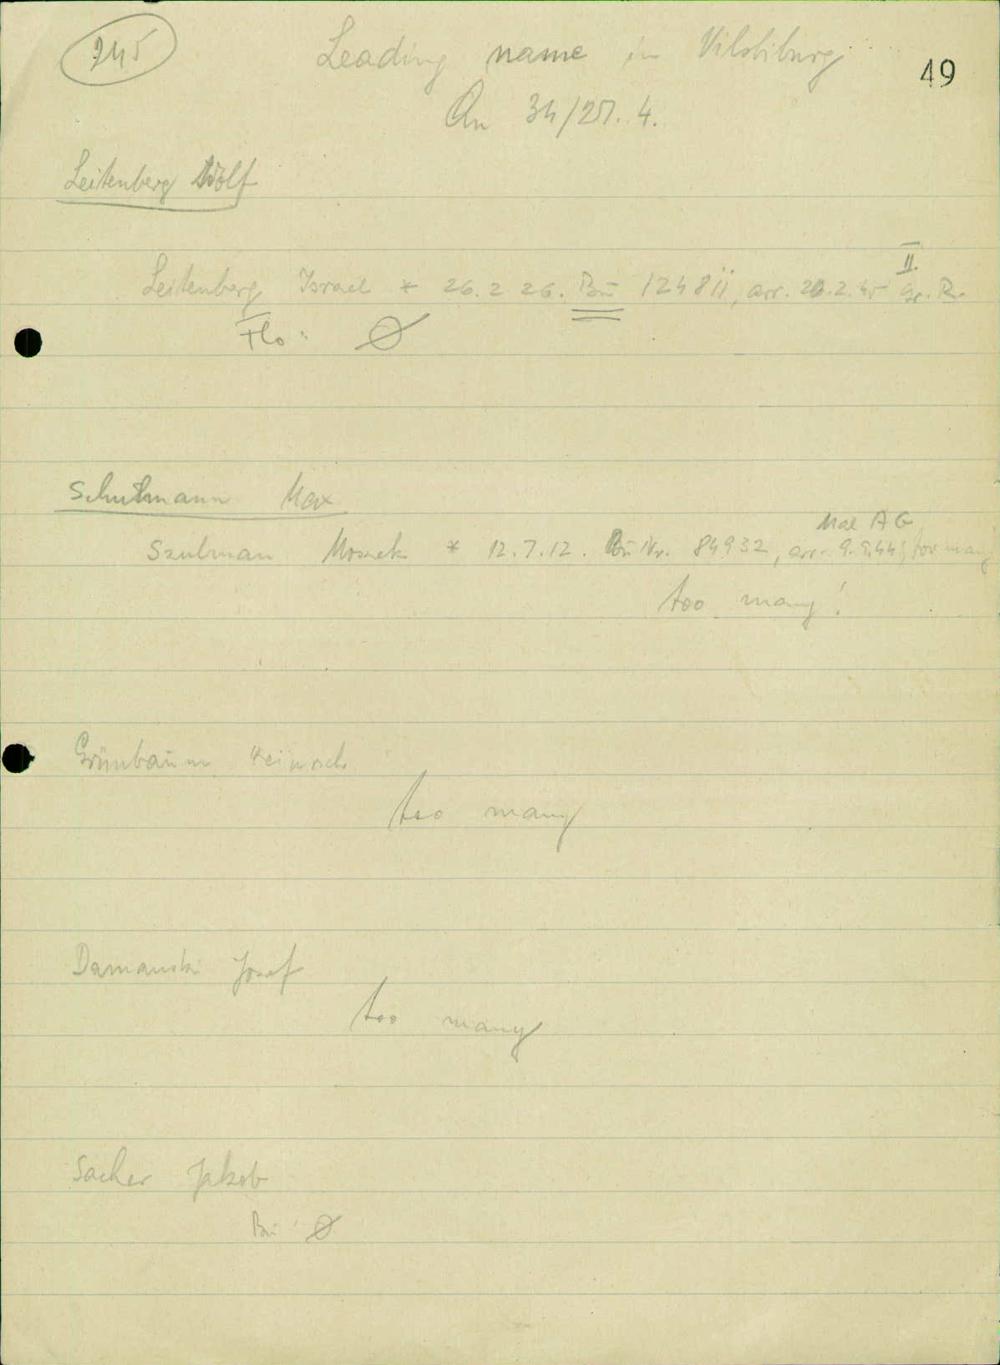 245
Leading name in Vilsbiburg
49
An 34/27. 4.
Leitenberg Adolf
II.
Leitenberg Israel * 26.2 26. Bu 124811, arr. 20.2.45 Gr. R.
Flo: Ø
Schulmann Max
Mai AG
Szulman Moszek * 12.7.12. Bu Nr. 84932, arr. 9.9.44, too many
too many!
Grünbaum Heinrich
too many
Damanski Josef
too many
Sacher Jakob
Bu: Ø